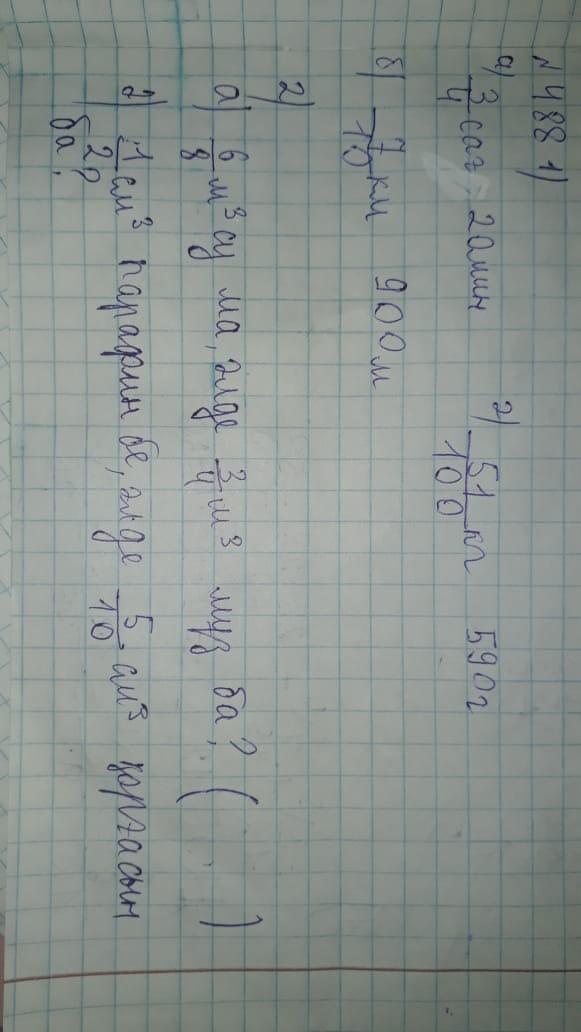 №488 1)
а) 3/4 сағ 20мин г) 51/100 кг 590г
б) 7/10 км 900м
2)
а) 6/8 м³ су ма, әлде 3/4 м³ мұз ба? ( )
г) 1/2 см³ парафин бе, әлде 5/10 см³ қорғасын
ба?